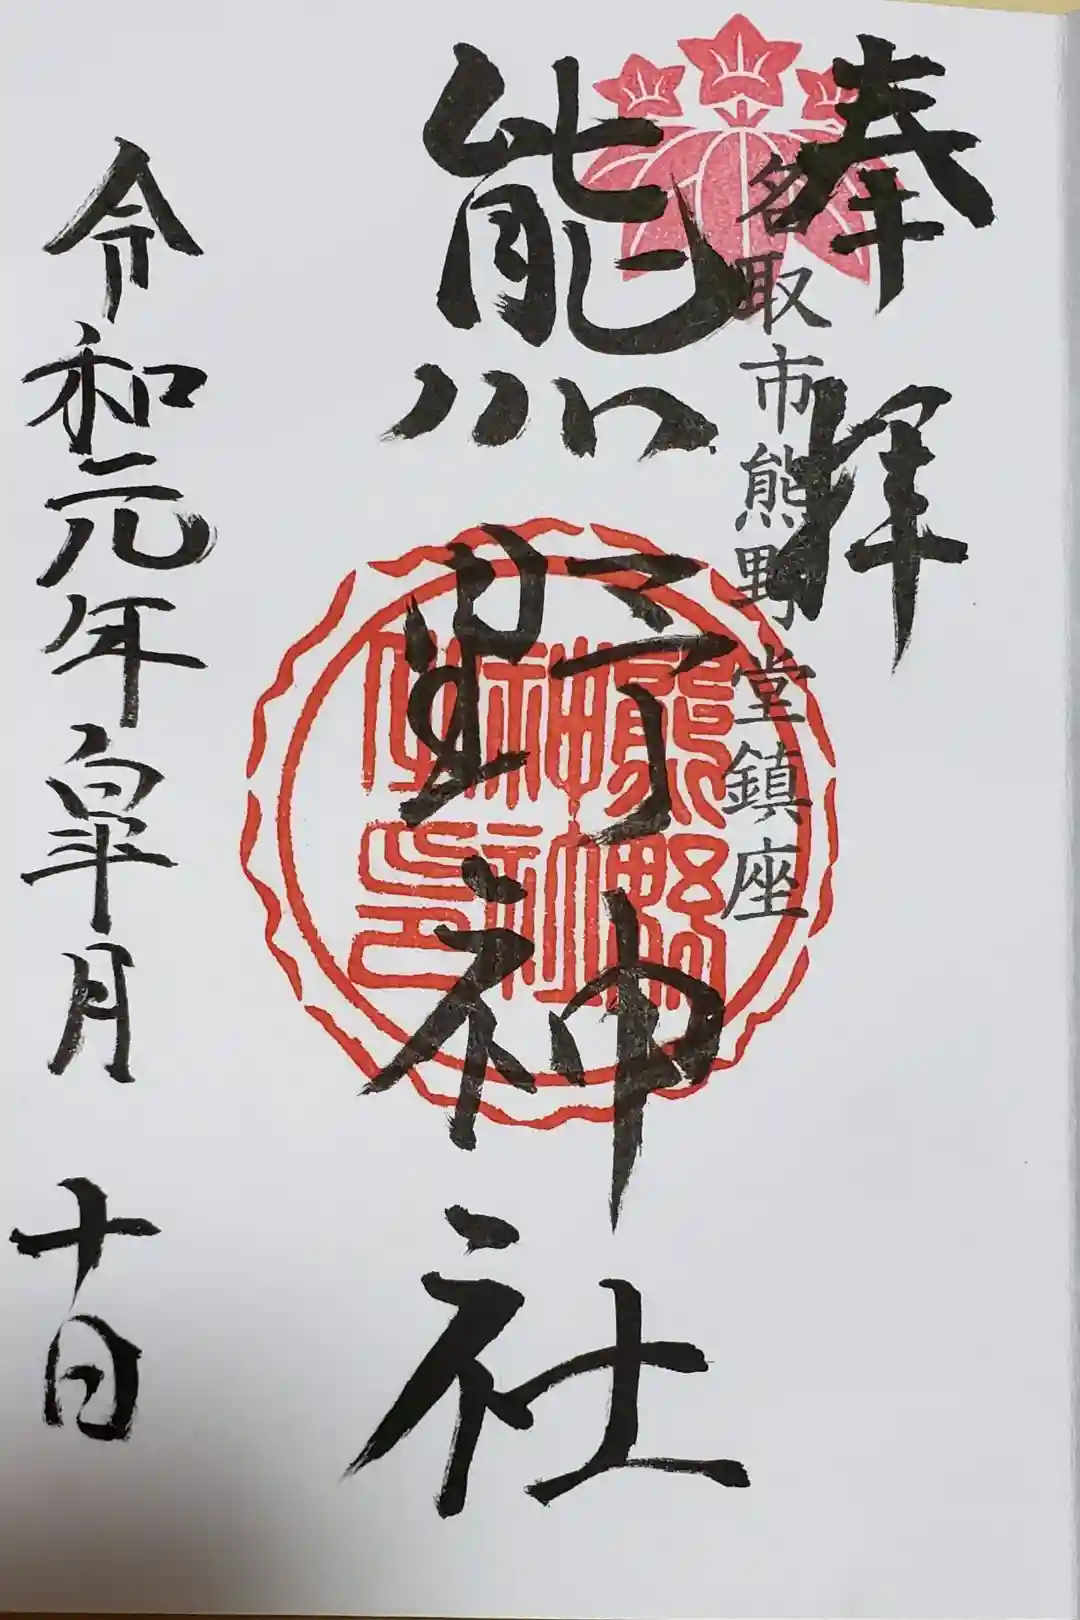 奉拝
名取市熊野堂鎮座
熊野神社
熊野
神社
令和元年皐月 十日